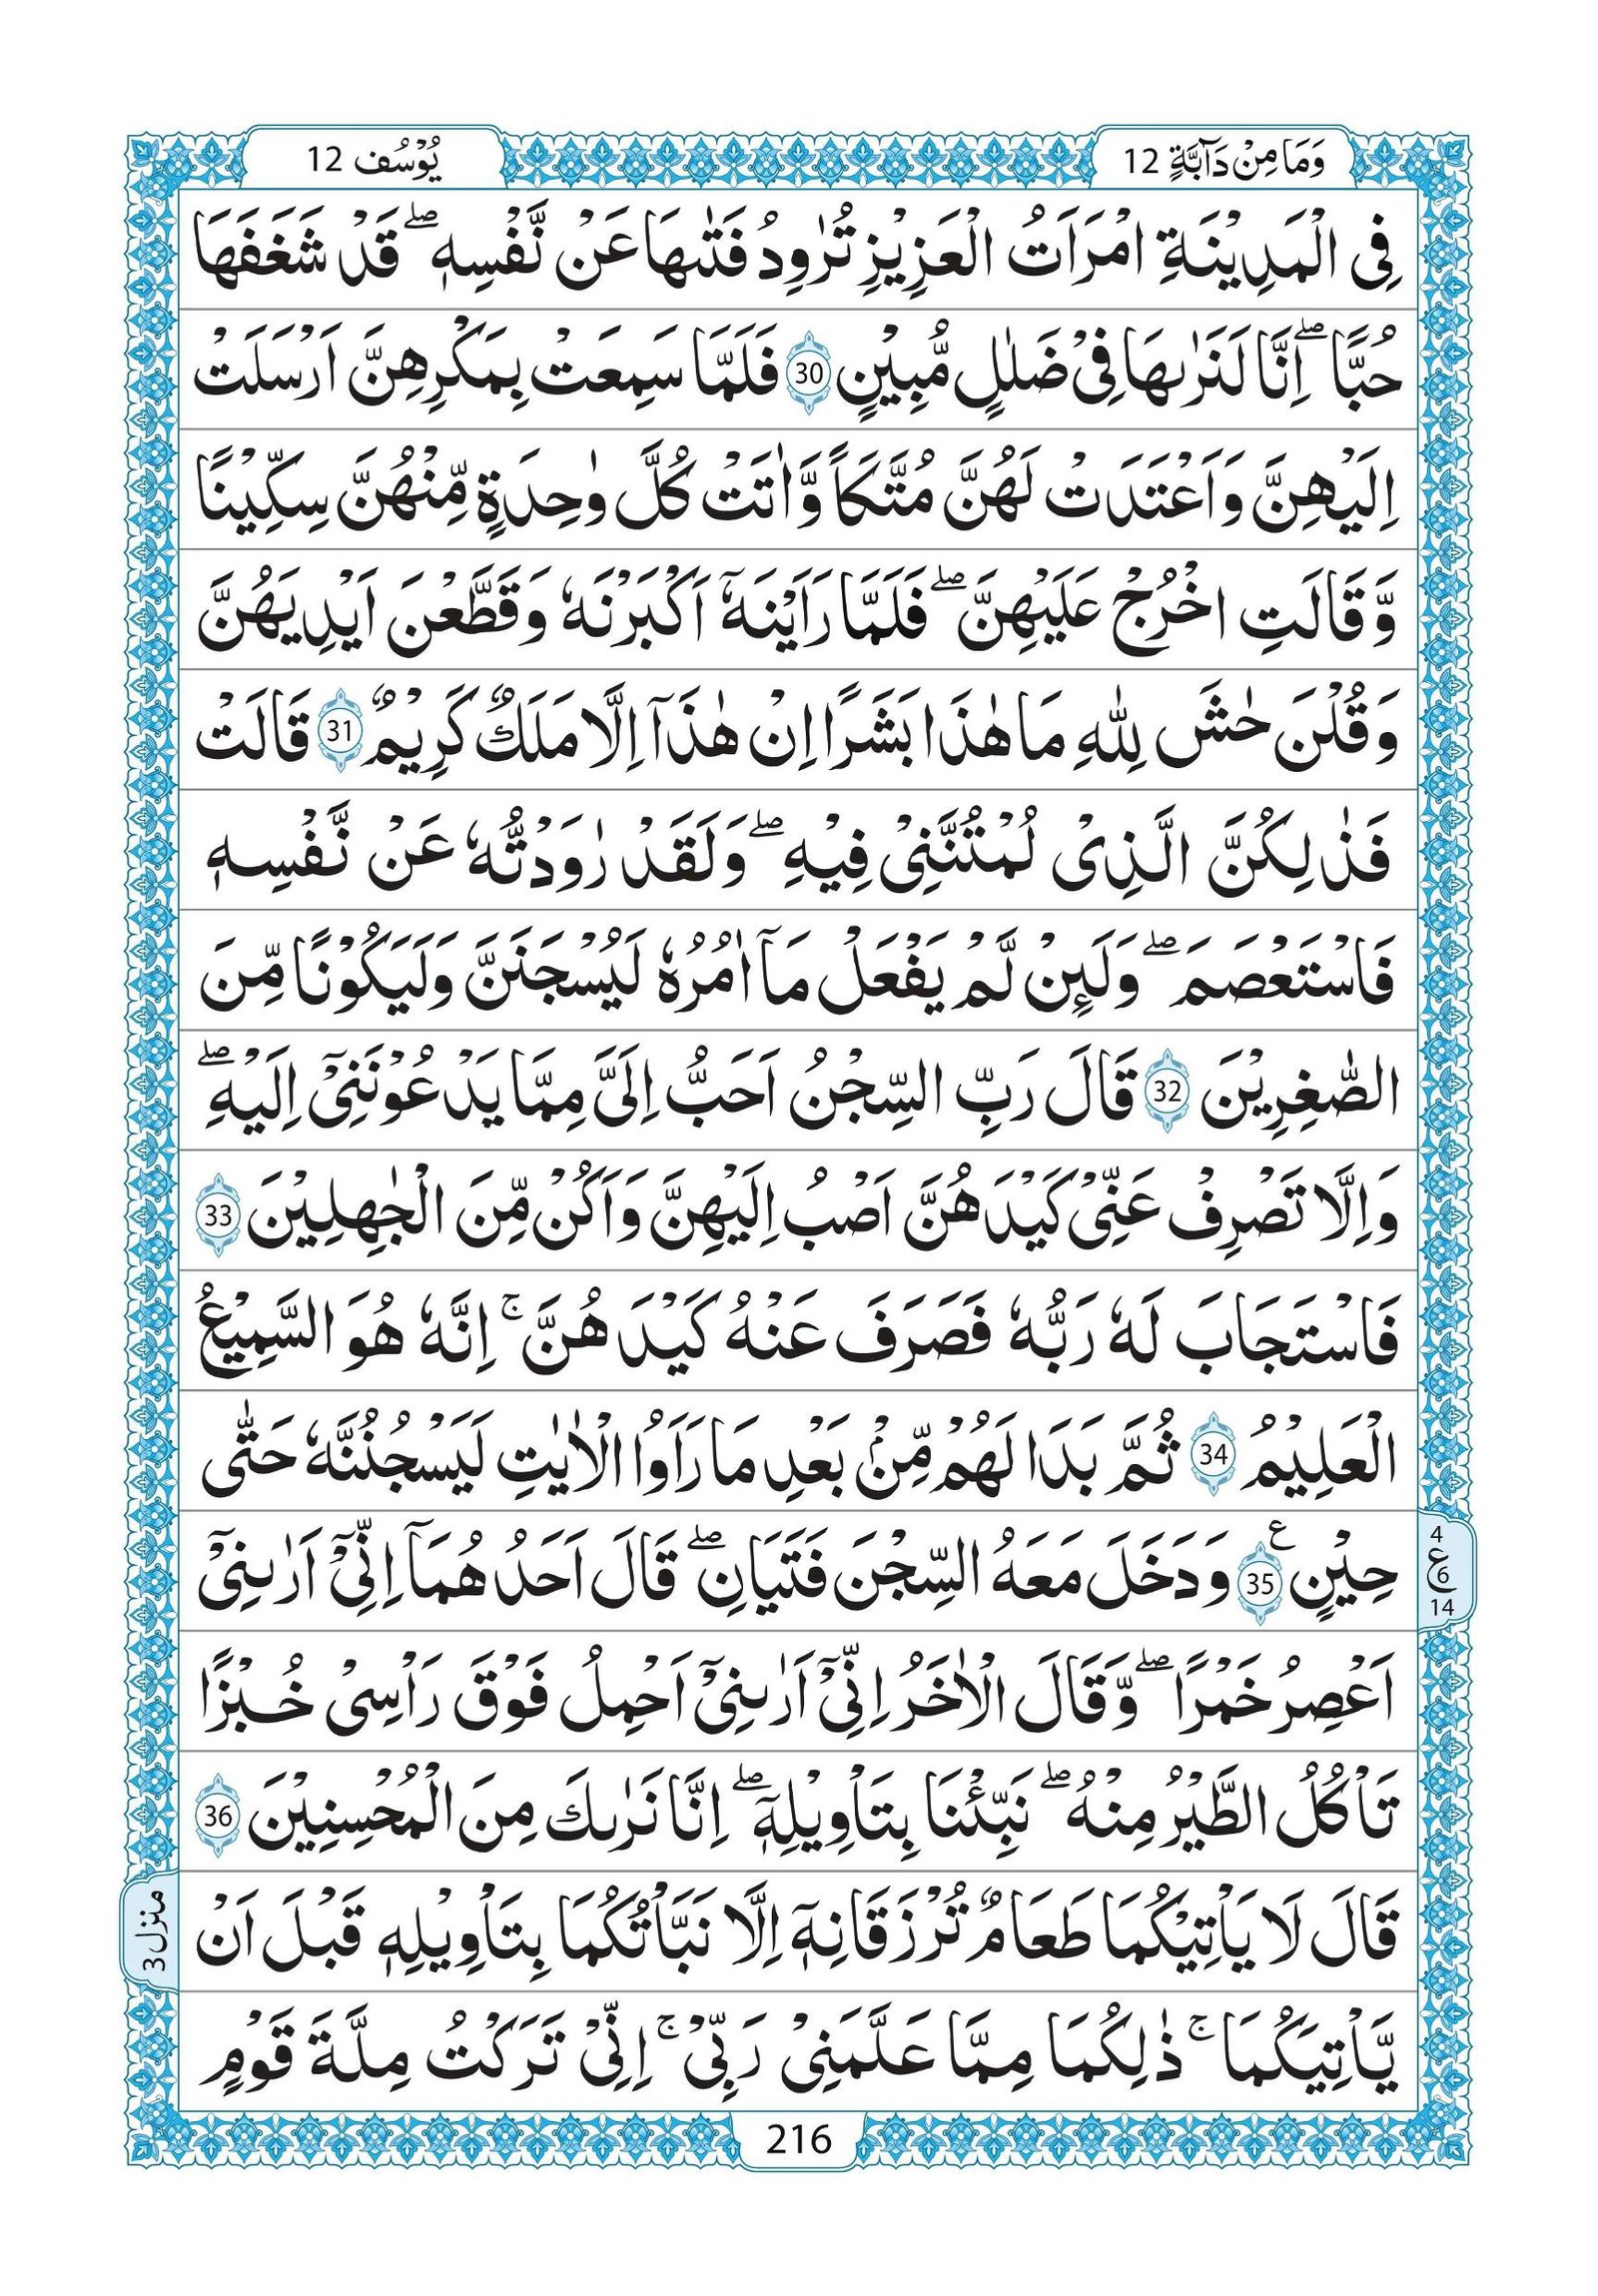 وَمَا مِنْ دَآبَّةٍ 12
يُوْسُف 12
فِى الْمَدِيْنَةِ امْرَاَتُ الْعَزِيْزِ تُرٰوِدُ فَتٰىهَا عَنْ نَّفْسِهٖ ۖ قَدْ شَغَفَهَا
حُبًّا ۖ اِنَّا لَنَرٰىهَا فِىْ ضَلٰلٍ مُّبِيْنٍ 30 فَلَمَّا سَمِعَتْ بِمَكْرِهِنَّ اَرْسَلَتْ
اِلَيْهِنَّ وَاَعْتَدَتْ لَهُنَّ مُتَّكَاً وَّاٰتَتْ كُلَّ وٰحِدَةٍ مِّنْهُنَّ سِكِّيْنًا
وَّقَالَتِ اخْرُجْ عَلَيْهِنَّ ۖ فَلَمَّا رَاَيْنَهٗٓ اَكْبَرْنَهٗ وَقَطَّعْنَ اَيْدِيَهُنَّ
وَقُلْنَ حٰشَ لِلّٰهِ مَا هٰذَا بَشَرًا اِنْ هٰذَآ اِلَّا مَلَكٌ كَرِيْمٌ 31 قَالَتْ
فَذٰلِكُنَّ الَّذِىْ لُمْتُنَّنِىْ فِيْهِ ۖ وَلَقَدْ رٰوَدْتُّهٗ عَنْ نَّفْسِهٖ
فَاسْتَعْصَمَ ۖ وَلَئِنْ لَّمْ يَفْعَلْ مَآ اٰمُرُهٗ لَيُسْجَنَنَّ وَلَيَكُوْنًا مِّنَ
الصّٰغِرِيْنَ 32 قَالَ رَبِّ السِّجْنُ اَحَبُّ اِلَىَّ مِمَّا يَدْعُوْنَنِىْٓ اِلَيْهِ ۖ
وَاِلَّا تَصْرِفْ عَنِّىْ كَيْدَهُنَّ اَصْبُ اِلَيْهِنَّ وَاَكُنْ مِّنَ الْجٰهِلِيْنَ 33
فَاسْتَجَابَ لَهٗ رَبُّهٗ فَصَرَفَ عَنْهُ كَيْدَهُنَّ ۚ اِنَّهٗ هُوَ السَّمِيْعُ
الْعَلِيْمُ 34 ثُمَّ بَدَا لَهُمْ مِّنْۢ بَعْدِ مَا رَاَوُا الْاٰيٰتِ لَيَسْجُنُنَّهٗ حَتّٰى
حِيْنٍ ع 35 وَدَخَلَ مَعَهُ السِّجْنَ فَتَيَانِ ۖ قَالَ اَحَدُهُمَآ اِنِّىْٓ اَرٰىنِىْٓ
4 ع 6 14
اَعْصِرُ خَمْرًا ۖ وَّقَالَ الْاٰخَرُ اِنِّىْٓ اَرٰىنِىْٓ اَحْمِلُ فَوْقَ رَاْسِىْ خُبْزًا
تَاْكُلُ الطَّيْرُ مِنْهُ ۖ نَبِّئْنَا بِتَاْوِيْلِهٖ ۖ اِنَّا نَرٰىكَ مِنَ الْمُحْسِنِيْنَ 36
قَالَ لَا يَاْتِيْكُمَا طَعَامٌ تُرْزَقَانِهٖٓ اِلَّا نَبَّاْتُكُمَا بِتَاْوِيْلِهٖ قَبْلَ اَنْ
منزل 3
يَّاْتِيَكُمَا ۚ ذٰلِكُمَا مِمَّا عَلَّمَنِىْ رَبِّىْ ۚ اِنِّىْ تَرَكْتُ مِلَّةَ قَوْمٍ
216